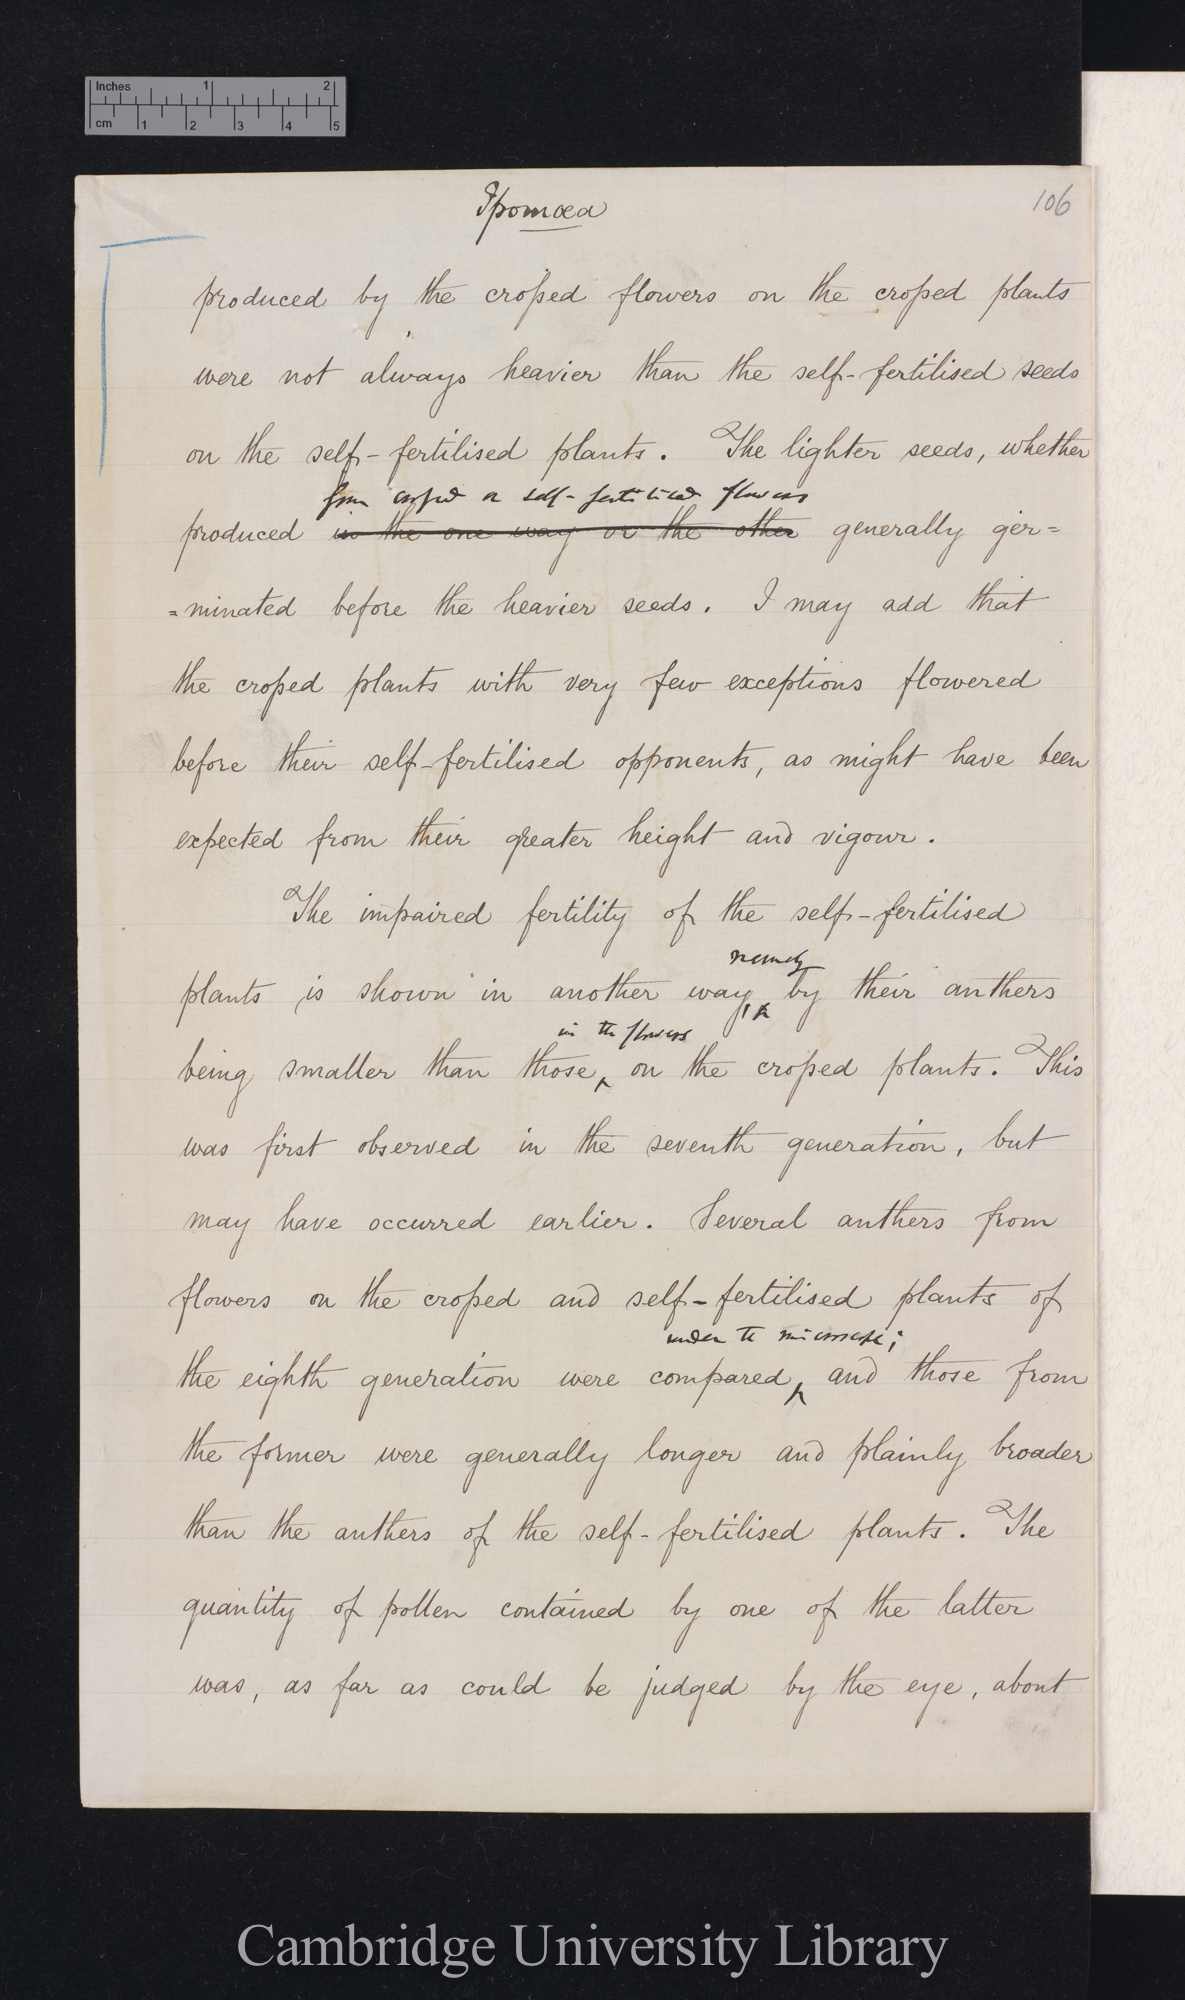 Inches 1 2
cm 1 2 3 4 5
Ipomœa
106
produced by the crossed flowers on the crossed plants
were not always heavier than the self-fertilised seeds
on the self-fertilised plants. The lighter seeds, whether
from crossed or self-fertilised flowers
produced in the one way or the other generally ger=
=minated before the heavier seeds. I may add that
the crossed plants with very few exceptions flowered
before their self-fertilised opponents, as might have been
expected from their greater height and vigour.
The impaired fertility of the self-fertilised
namely
plants is shown in another way, by their anthers
in the flowers
being smaller than those on the crossed plants. This
was first observed in the seventh generation, but
may have occurred earlier. Several anthers from
flowers on the crossed and self-fertilised plants of
under the microscope;
the eighth generation were compared, and those from
the former were generally longer and plainly broader
than the anthers of the self-fertilised plants. The
quantity of pollen contained by one of the latter
was, as far as could be judged by the eye, about
Cambridge University Library